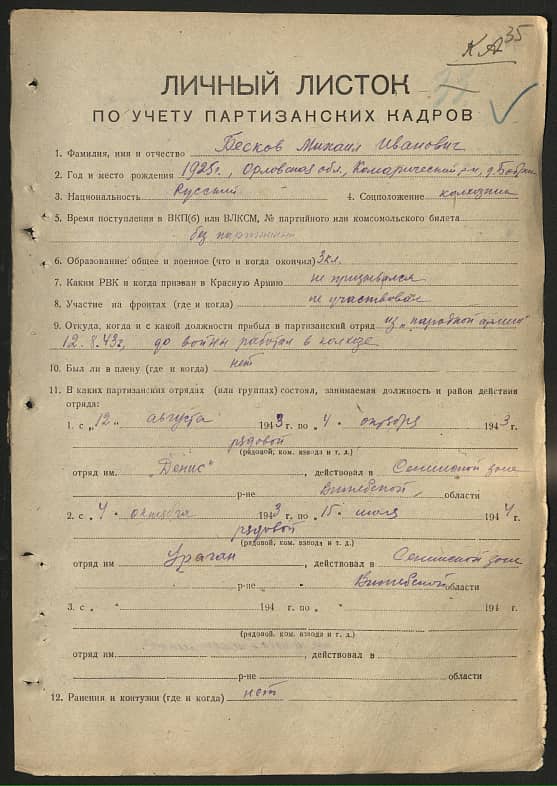 К А 35
ЛИЧНЫЙ ЛИСТОК
ПО УЧЕТУ ПАРТИЗАНСКИХ КАДРОВ
1. Фамилия, имя и отчество Песков Михаил Иванович
2. Год и место рождения 1925г., Орловская обл., Комарический р-н, д.
3. Национальность Русский 4. Соцположение колхозник
5. Время поступления в ВКП(б) или ВЛКСМ, № партийного или комсомольского билета
без партийный
6. Образование: общее и военное (что и когда окончил) 3кл.
7. Каким РВК и когда призван в Красную Армию не призывался
8. Участие на фронтах (где и когда) не участвовал
9. Откуда, когда и с какой должности прибыл в партизанский отряд из „народной армии"
12.8.43г, до войны работал в колхозе
10. Был ли в плену (где и когда) нет
11. В каких партизанских отрядах (или группах) состоял, занимаемая должность и район действия
отряда:
1. с „12" августа 1943 г. по „4" октября 1943 г.
рядовой
(рядовой, ком. взвода и т. д.)
отряд им „Денис", действовал в Сенинской зоне
р-не Витебской, области
2. с „4" октября 1943 г. по „15" июля 1944 г.
рядовой
(рядовой, ком. взвода и т. д.)
отряд им Ураган, действовал в Сенинской зоне
р-не Витебской области
3. с „ " 194 г. по „ " 194 г.
(рядовой, ком. взвода и т. д.)
отряд им., действовал в
р-не области
12. Ранения и контузии (где и когда) нет